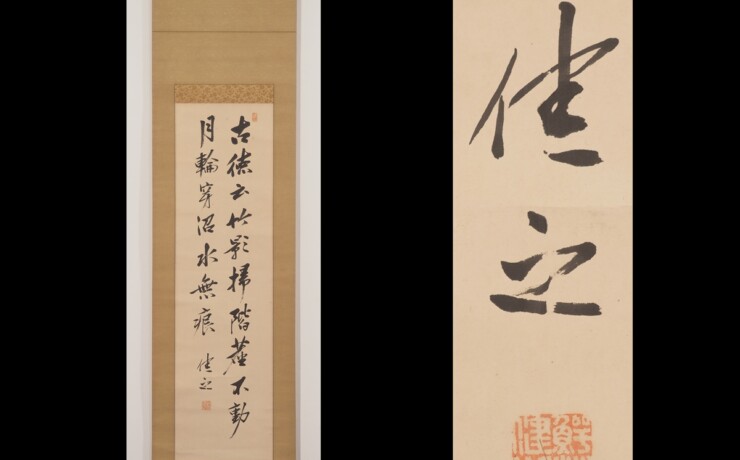 古徳云竹影掃階塵不動
月輪穿沼水無痕
之
之